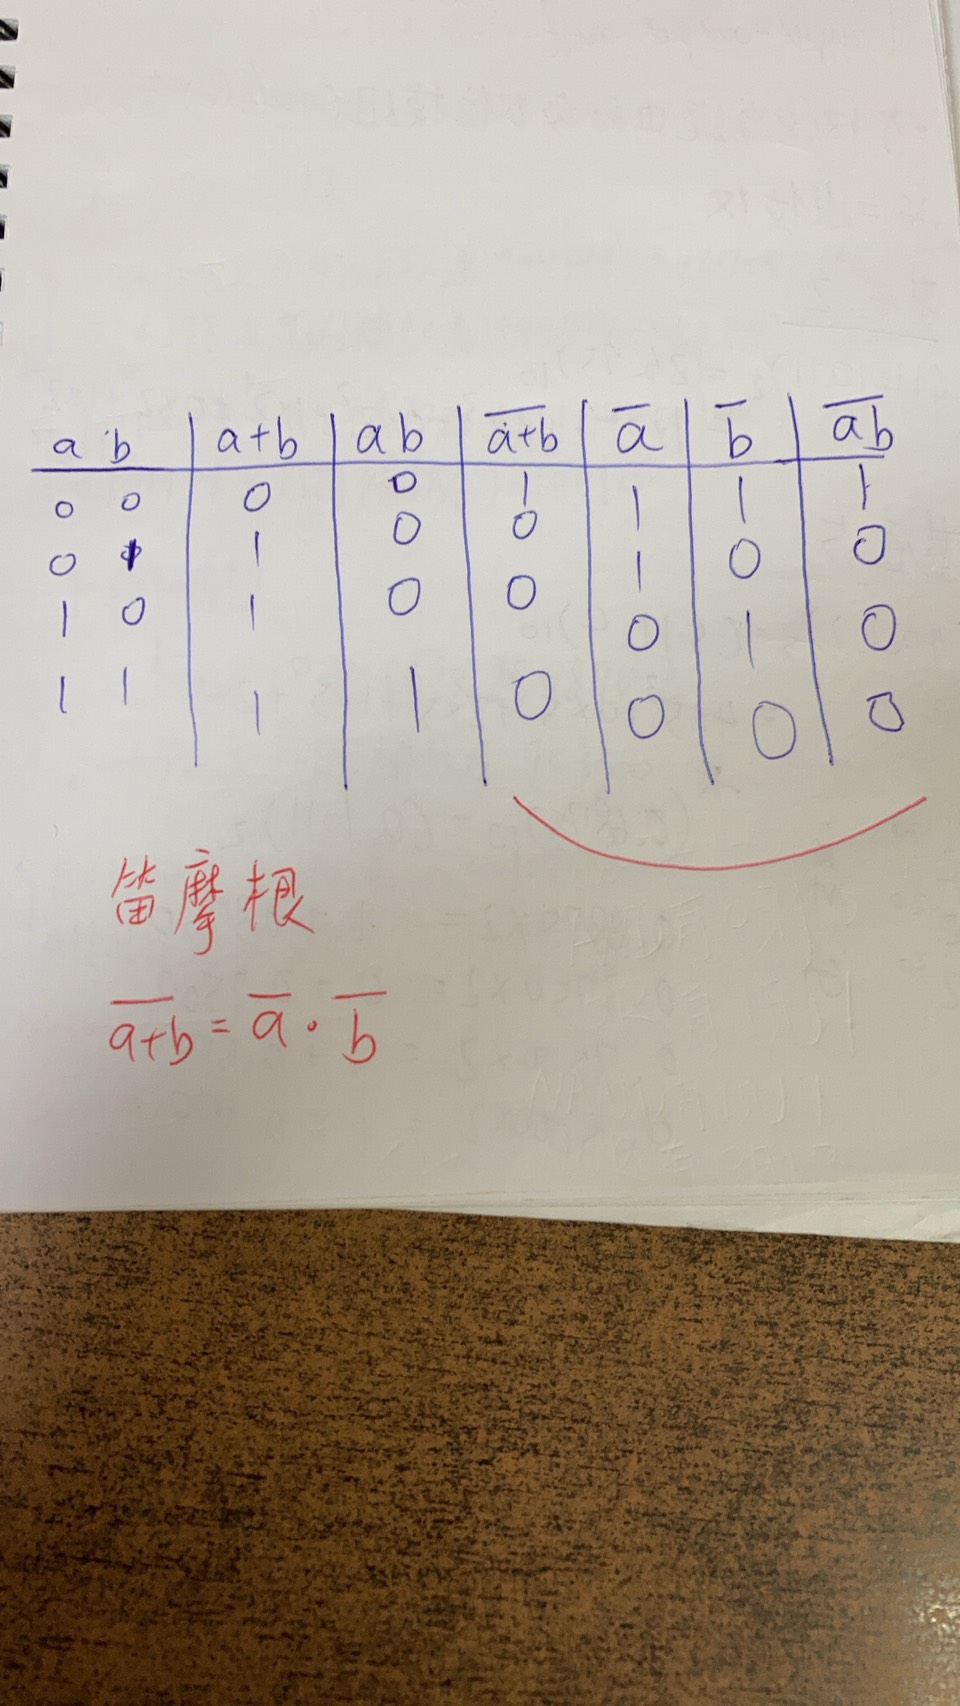 a b | a+b | ab | a̅+̅b̅ | a̅ | b̅ | a̅b̅
0 0 | 0 | 0 | 1 | 1 | 1 | 1
0 1 | 1 | 0 | 0 | 1 | 0 | 0
1 0 | 1 | 0 | 0 | 0 | 1 | 0
1 1 | 1 | 1 | 0 | 0 | 0 | 0
笛摩根
a̅+̅b̅ = a̅ · b̅